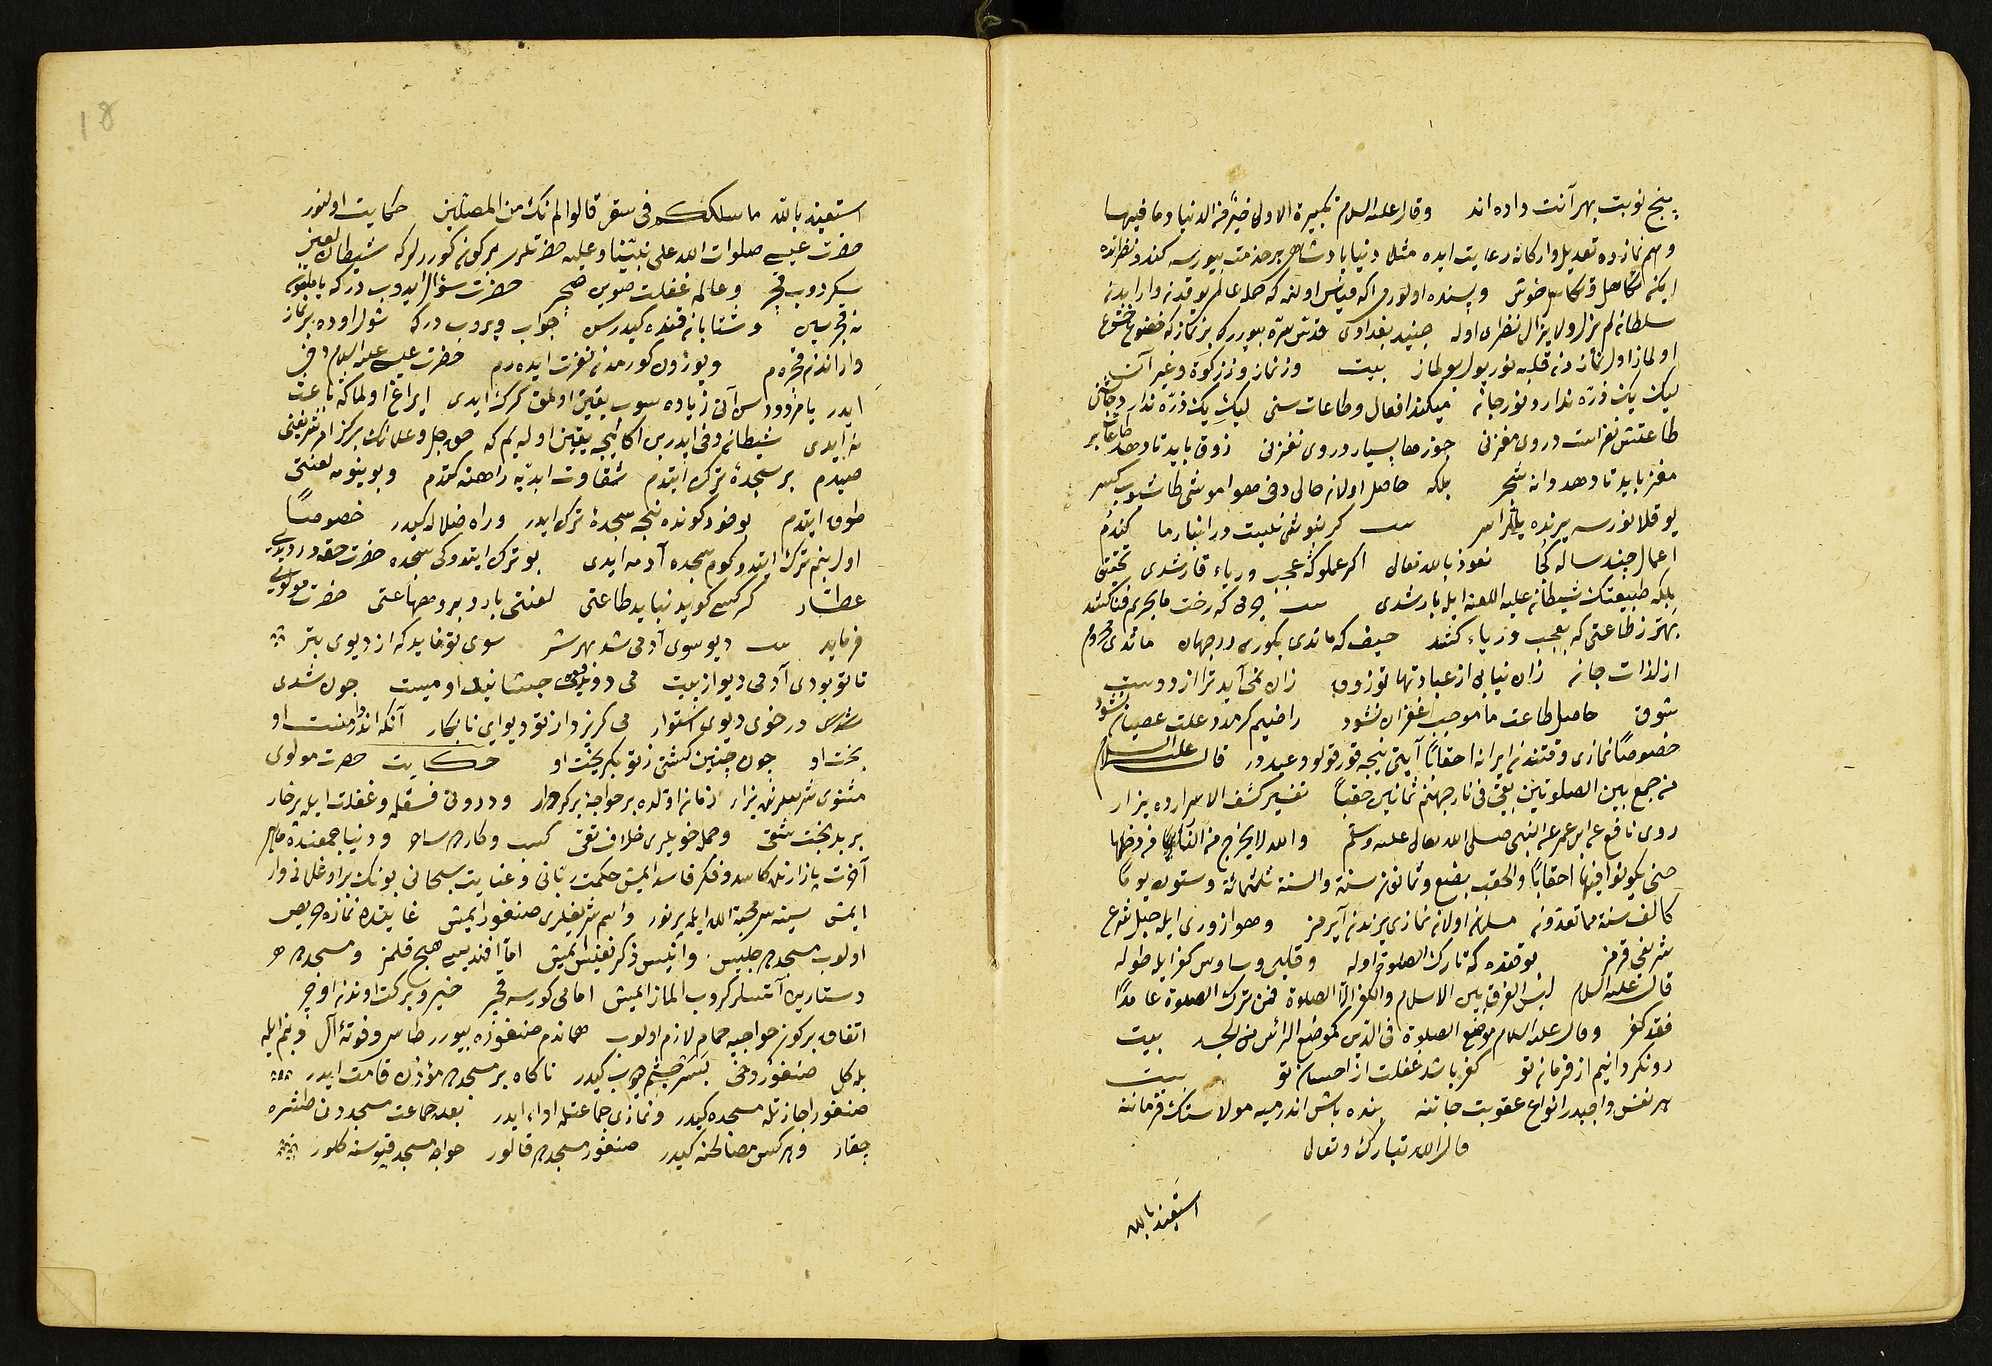 پنج نوبت بهر آنت داده اند وقال علیه السلام تکبیرة الاولی خیر من الدنیا وما فیها
وهم نمازده تعدیل وارکانه رعایت ایده مثلا دنیا پادشاهی بر خدمت بیورسه کندو نظرنده
خوش وپسنده اولورمی که قیاس اولنه که جمله عالم
سلطانه لم یزل ولا یزال نظری اوله جنید بغدادی قدس سره بیوررکه بر نمازکه خضوع خشوع
اولماز اول نمازدنه قلبه نور یول بولماز بیت وز نماز وز زکوة وغیر آن
لیک یک ذره ندارد نور جانه میکند افعال وطاعات سنی لیک یک ذره ندارد چاشنی
طاعتش نغزاست وروی مغزنی جوزها بسیار دروی مغزنی ذوق باید تا دهد طاعات بر
مغز باید تا دهد دانه شجر بلکه حاصل اولان حالی دخی هوا موشی
یوقلانورسه یرنده یللر اسر گرنبوشی نیست در انبار ما گندم
اعمال چند ساله کجا نعوذ بالله تعالی اکر عملوکه عجب وریاء قارشدی تحقیق
بلکه طبیعتک شیطانه علیه اللعنه ایله یار شدی که رخت ما بحریم فنا کشد
بهتر ز طاعتی که بعجب وریاء کشد حیف که ماندی بکوری در جهان ماندی محروم
از لذات جانه زان نیابی از عبادتها تو ذوق زان نمی آید ترا از دوست
شوق حاصل طاعت ما موجب غفران نشود راضیم کرمدد علت عصیان نشود
خصوصا نمازی وقتندنه ایرانه احقابا آیتی نیجه قورقولو وعیددر قال علیه السلام
من جمع بین الصلوتین بقی فی نار جهنم ثمانین حقبا تفسیر کشف الاسرارده یزار
روی نافع عن ابن عمر عن النبی صلی الله تعالی علیه وسلم والله لا یخرج من النار من دخلها
حتی یکونوا فیها احقابا والحقب بضع وثمانون سنة والسنة ثلثمائة وستون یوما
کالف سنة مما تعدون مسلمان اولانه نمازی یرندنه آیرمز وهوا زوری ایله حبل شرع
شریفی قرمز بو قنده که تارک الصلوة اوله وقلبی وساوس کفر ایله طوله
قال علیه السلام لیس الفرق بین الاسلام والکفر الا الصلوة فمن ترک الصلوة عامدا
فقد کفر وقال علیه السلام موضع الصلوة فی الدین کموضع الراس من الجسد بیت
رو نکردانیم از فرمانه تو کفر باشد غفلت از احسان تو بیت
بهر نفس واجبدر انواع عقوبت جاننه بنده باش اندرمیه مولاسنک فرماننه
قال الله تبارک وتعالی
استعیذ بالله
18
استعیذ بالله ما سلککم فی سقر قالوا لم نک من المصلین حکایت اولنور
حضرت عیسی صلوات الله علی نبینا وعلیه حضرتلری بر کون کوررلرکه شیطان لعین
سکردوب قچر وعالمه غفلت صویی صچر حضرت سؤال ایدوب دیرکه یا ملعون
نه قچرسین وشتابانه قنده کیدرسن جواب ویروب دیرکه شول اوده بی نماز
وار اندنه قچرم ویوزون کورمدنه نفرت ایدرم حضرت عیسی علیه السلام دخی
ایدر یا مردود سن آنی زیاده سوب یقین اولمق کرک ایدی ایراغ اولماکه باعث
نه ایدی شیطانه دخی ایدر بن اکا نیجه یقین اوله یم که حق جل وعلانک بر کز امر شریفنی
صیدم بر سجده ترک ایتدم شقاوت ابدیه راهنه کتدم وبوینومه لعنتی
طوق ایتدم بو خود کونده نیجه سجده ترک ایدر وراه ضلاله کیدر خصوصا
اول بنم ترک ایتدوکوم سجده آدمه ایدی بو ترک ایتدوکی سجده حضرت حقه در
عطار کرکسی کوید نباید طاعتی لعنتی بارد برو هر ساعتی حضرت مولوی
فرماید دیو سوی آدمی شد بهر شر سوی تو ناید که از دیوی بتر
تا تو بودی آدمی دیو از پیت می دوید ومی چشانید او میت چون شدی
در خوی دیوی استوار می کریزد از تو دیو ای نابکار آنکه اندر دامنت او
بخت او چون چنین کشتی ز تو بکریخت او حکایت حضرت مولوی
مثنوی شریفلرنده یزار زمانه اولده بر خواجه بر کردار ودرونی فسقله وغفلت ایله پرخار
بر بدبخت شقی وجمله خویلری خلاف تقی کسب وکارده ساهی ودنیا جمعنده ماهر
آخرت بازارنده کاسد وفکر فاسد ایمش حکمت ربانی وعنایت سبحانی بونک بر اوغلانی وار
ایمش سینه سی محبة الله ایله پرنور واسم شریفلری صنغور ایمش غایتده نمازه حریص
اولوب مسجده جلیس وانیس ذکر نفیس ایمش اما افندیسی هیچ قلمز ومسجدده
دستارین آتسلر کروب الماز ایمش امامی کورسه قچر خیر وبرکت اوندنه اوچر
اتفاق بر کون خواجیه حمام لازم اولوب هماندم صنغوره بیورر طاس وفوته آل وبنم ایله
بله کل صنغور دخی بسر وچشم دیوب کیدر ناکاه بر مسجدده مؤذن قامت ایدر
صنغور اجازتله مسجده کیدر ونمازی جماعتله اداء ایدر بعده جماعت مسجددن طشره
چقار وهرکس مصالحنه کیدر صنغور مسجدده قالور خواجه مسجد قپوسنه کلور